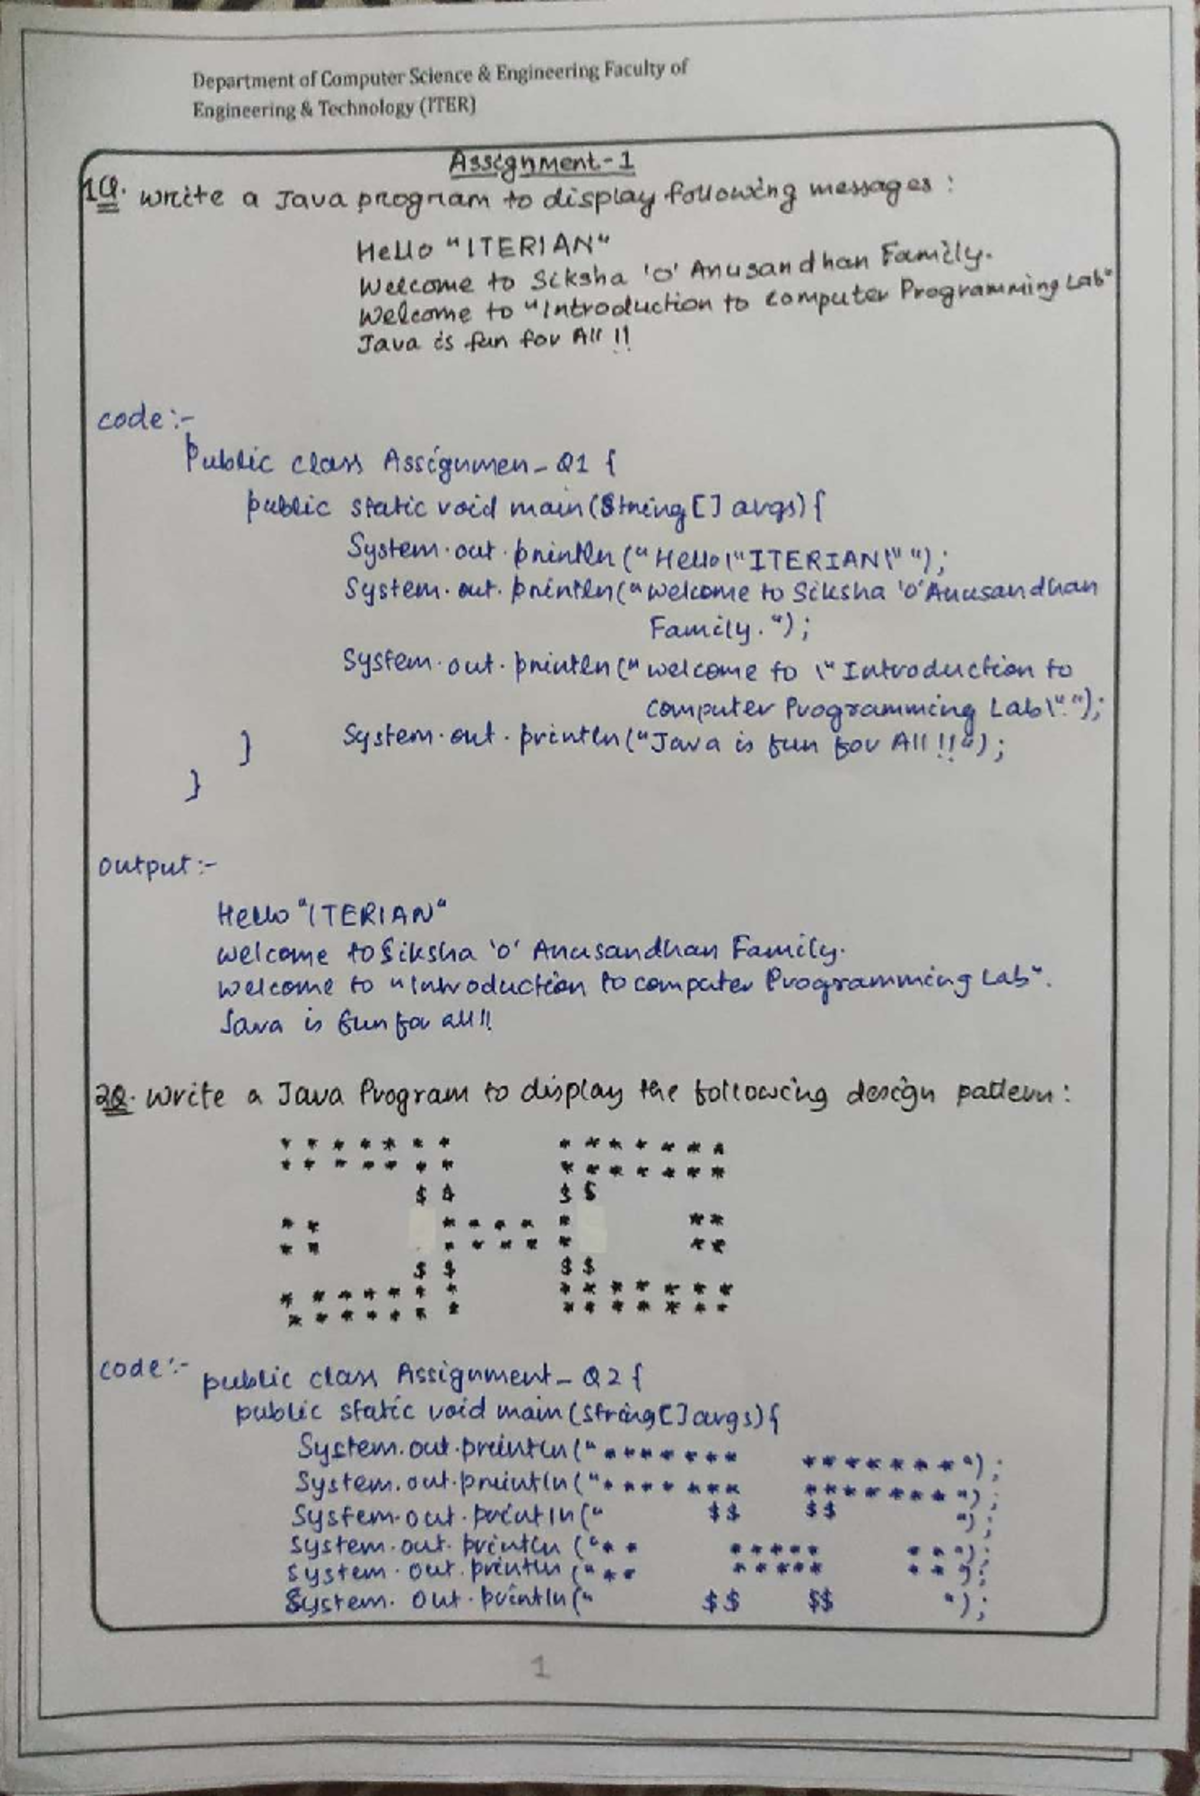 Department of Computer Science & Engineering Faculty of
Engineering & Technology (ITER)
Assignment-1
1Q. Write a Java program to display following messages :
Hello "ITERIAN"
Welcome to Siksha 'O' Anusandhan Family.
Welcome to "Introduction to Computer Programming Lab"
Java is fun for All !!
code :-
Public class Assignmen_Q1 {
public static void main(String[] args){
System.out.println("Hello\"ITERIAN\" ");
System.out.println("welcome to Siksha 'O' Anusandhan
Family.");
System.out.println("welcome to \"Introduction to
computer Programming Lab\".");
} System.out.println("Java is fun for All !!");
}
output :-
Hello "ITERIAN"
welcome to Siksha 'O' Anusandhan Family.
welcome to "Introduction to computer Programming Lab".
Java is fun for all !!
2Q. Write a Java Program to display the following design pattern :
* * * * * * * * * * * * * *
* * * * * * * * * * * * * *
$ $ $ $
* * * * * * * * *
* * * * * * * * *
$ $ $ $
* * * * * * * * * * * * * *
* * * * * * * * * * * * * *
code :- public class Assignment_Q2 {
public static void main(String[] args){
System.out.println("******* ********");
System.out.println("******* ********");
System.out.println(" $$ $$ ");
System.out.println("** ***** **");
System.out.println("** ***** **");
System.out.println(" $$ $$ ");
1